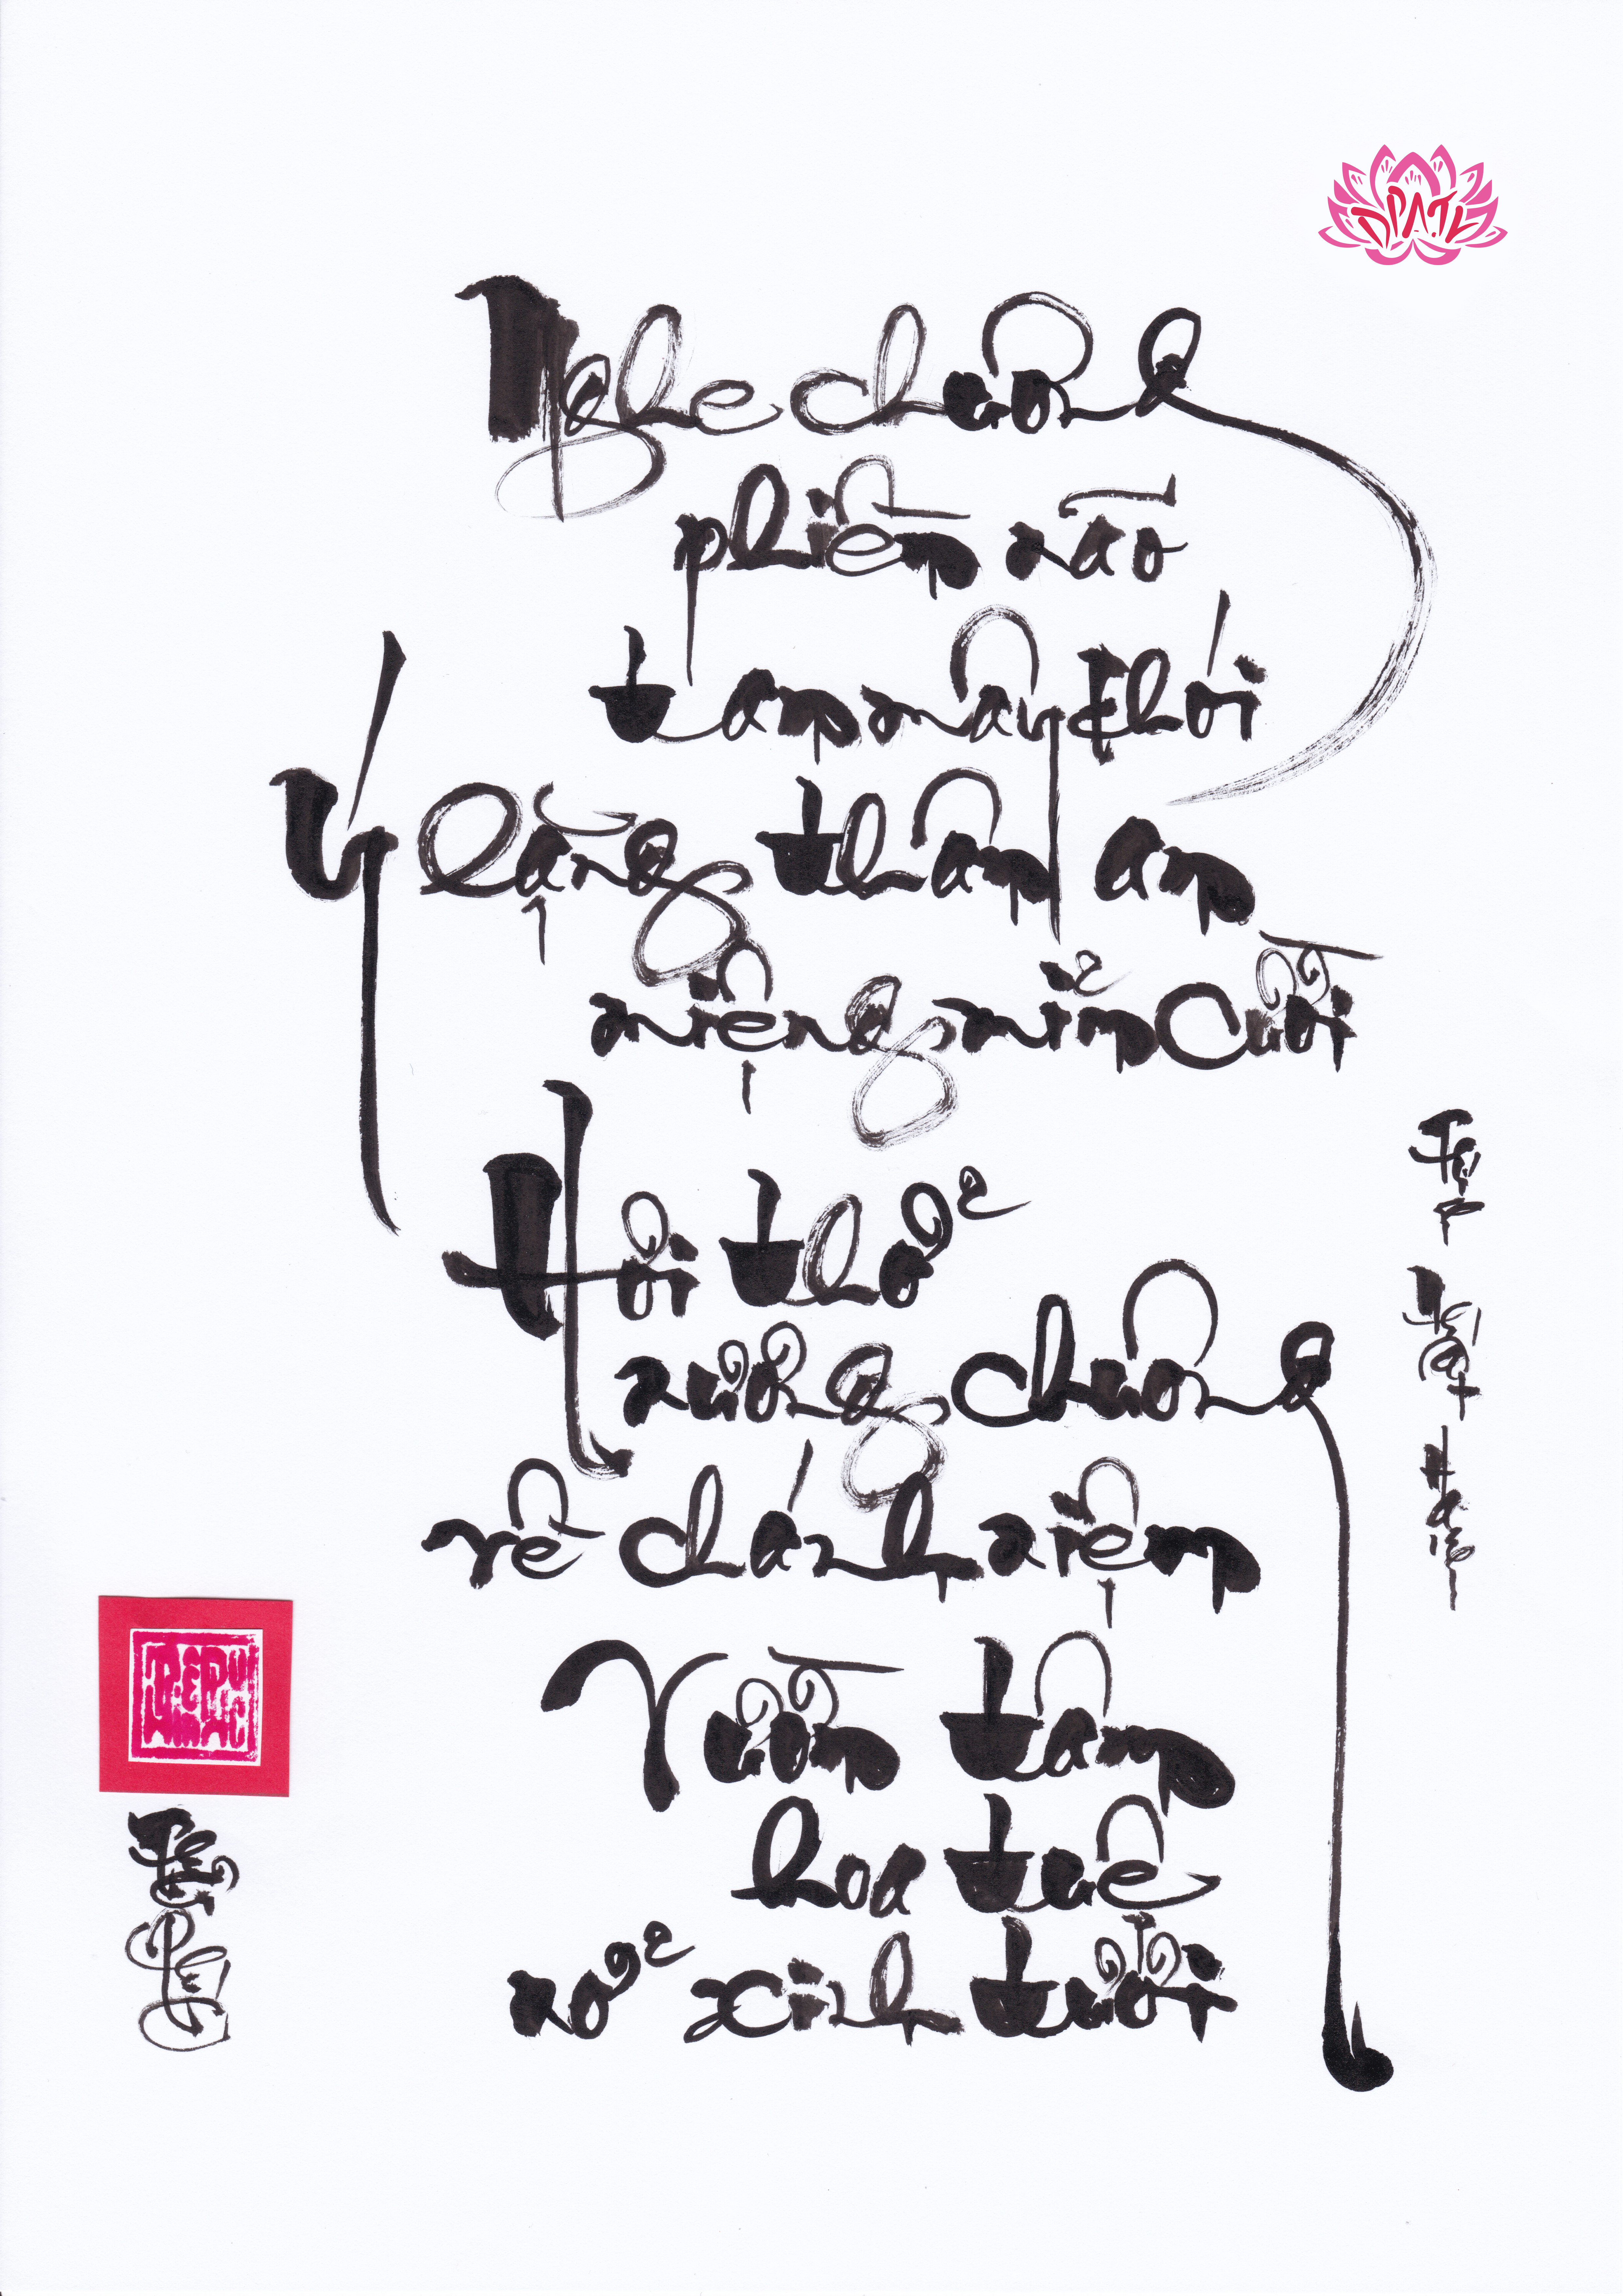 Nghe chuông
phiền não
tan mây khói
Ý lặng thân an
miệng mỉm cười
Hơi thở
nương chuông
về chánh niệm
Vườn tâm
hoa tuệ
nở xinh tươi
Nhất
Hạnh